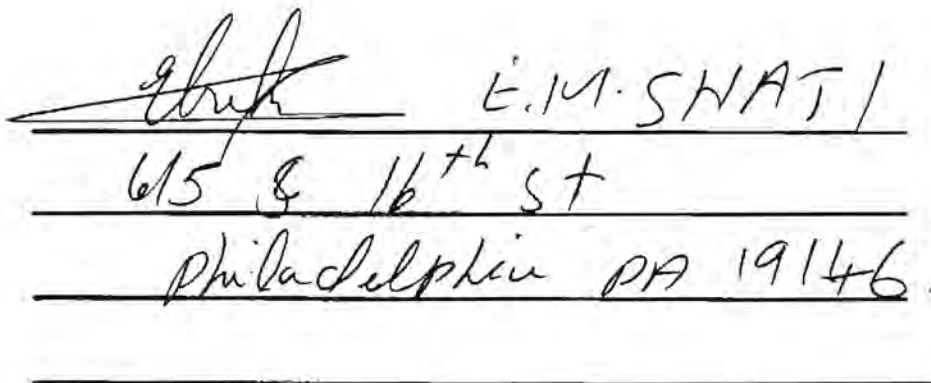 E.M. SHATI
615 S 16th St
philadelphia PA 19146.